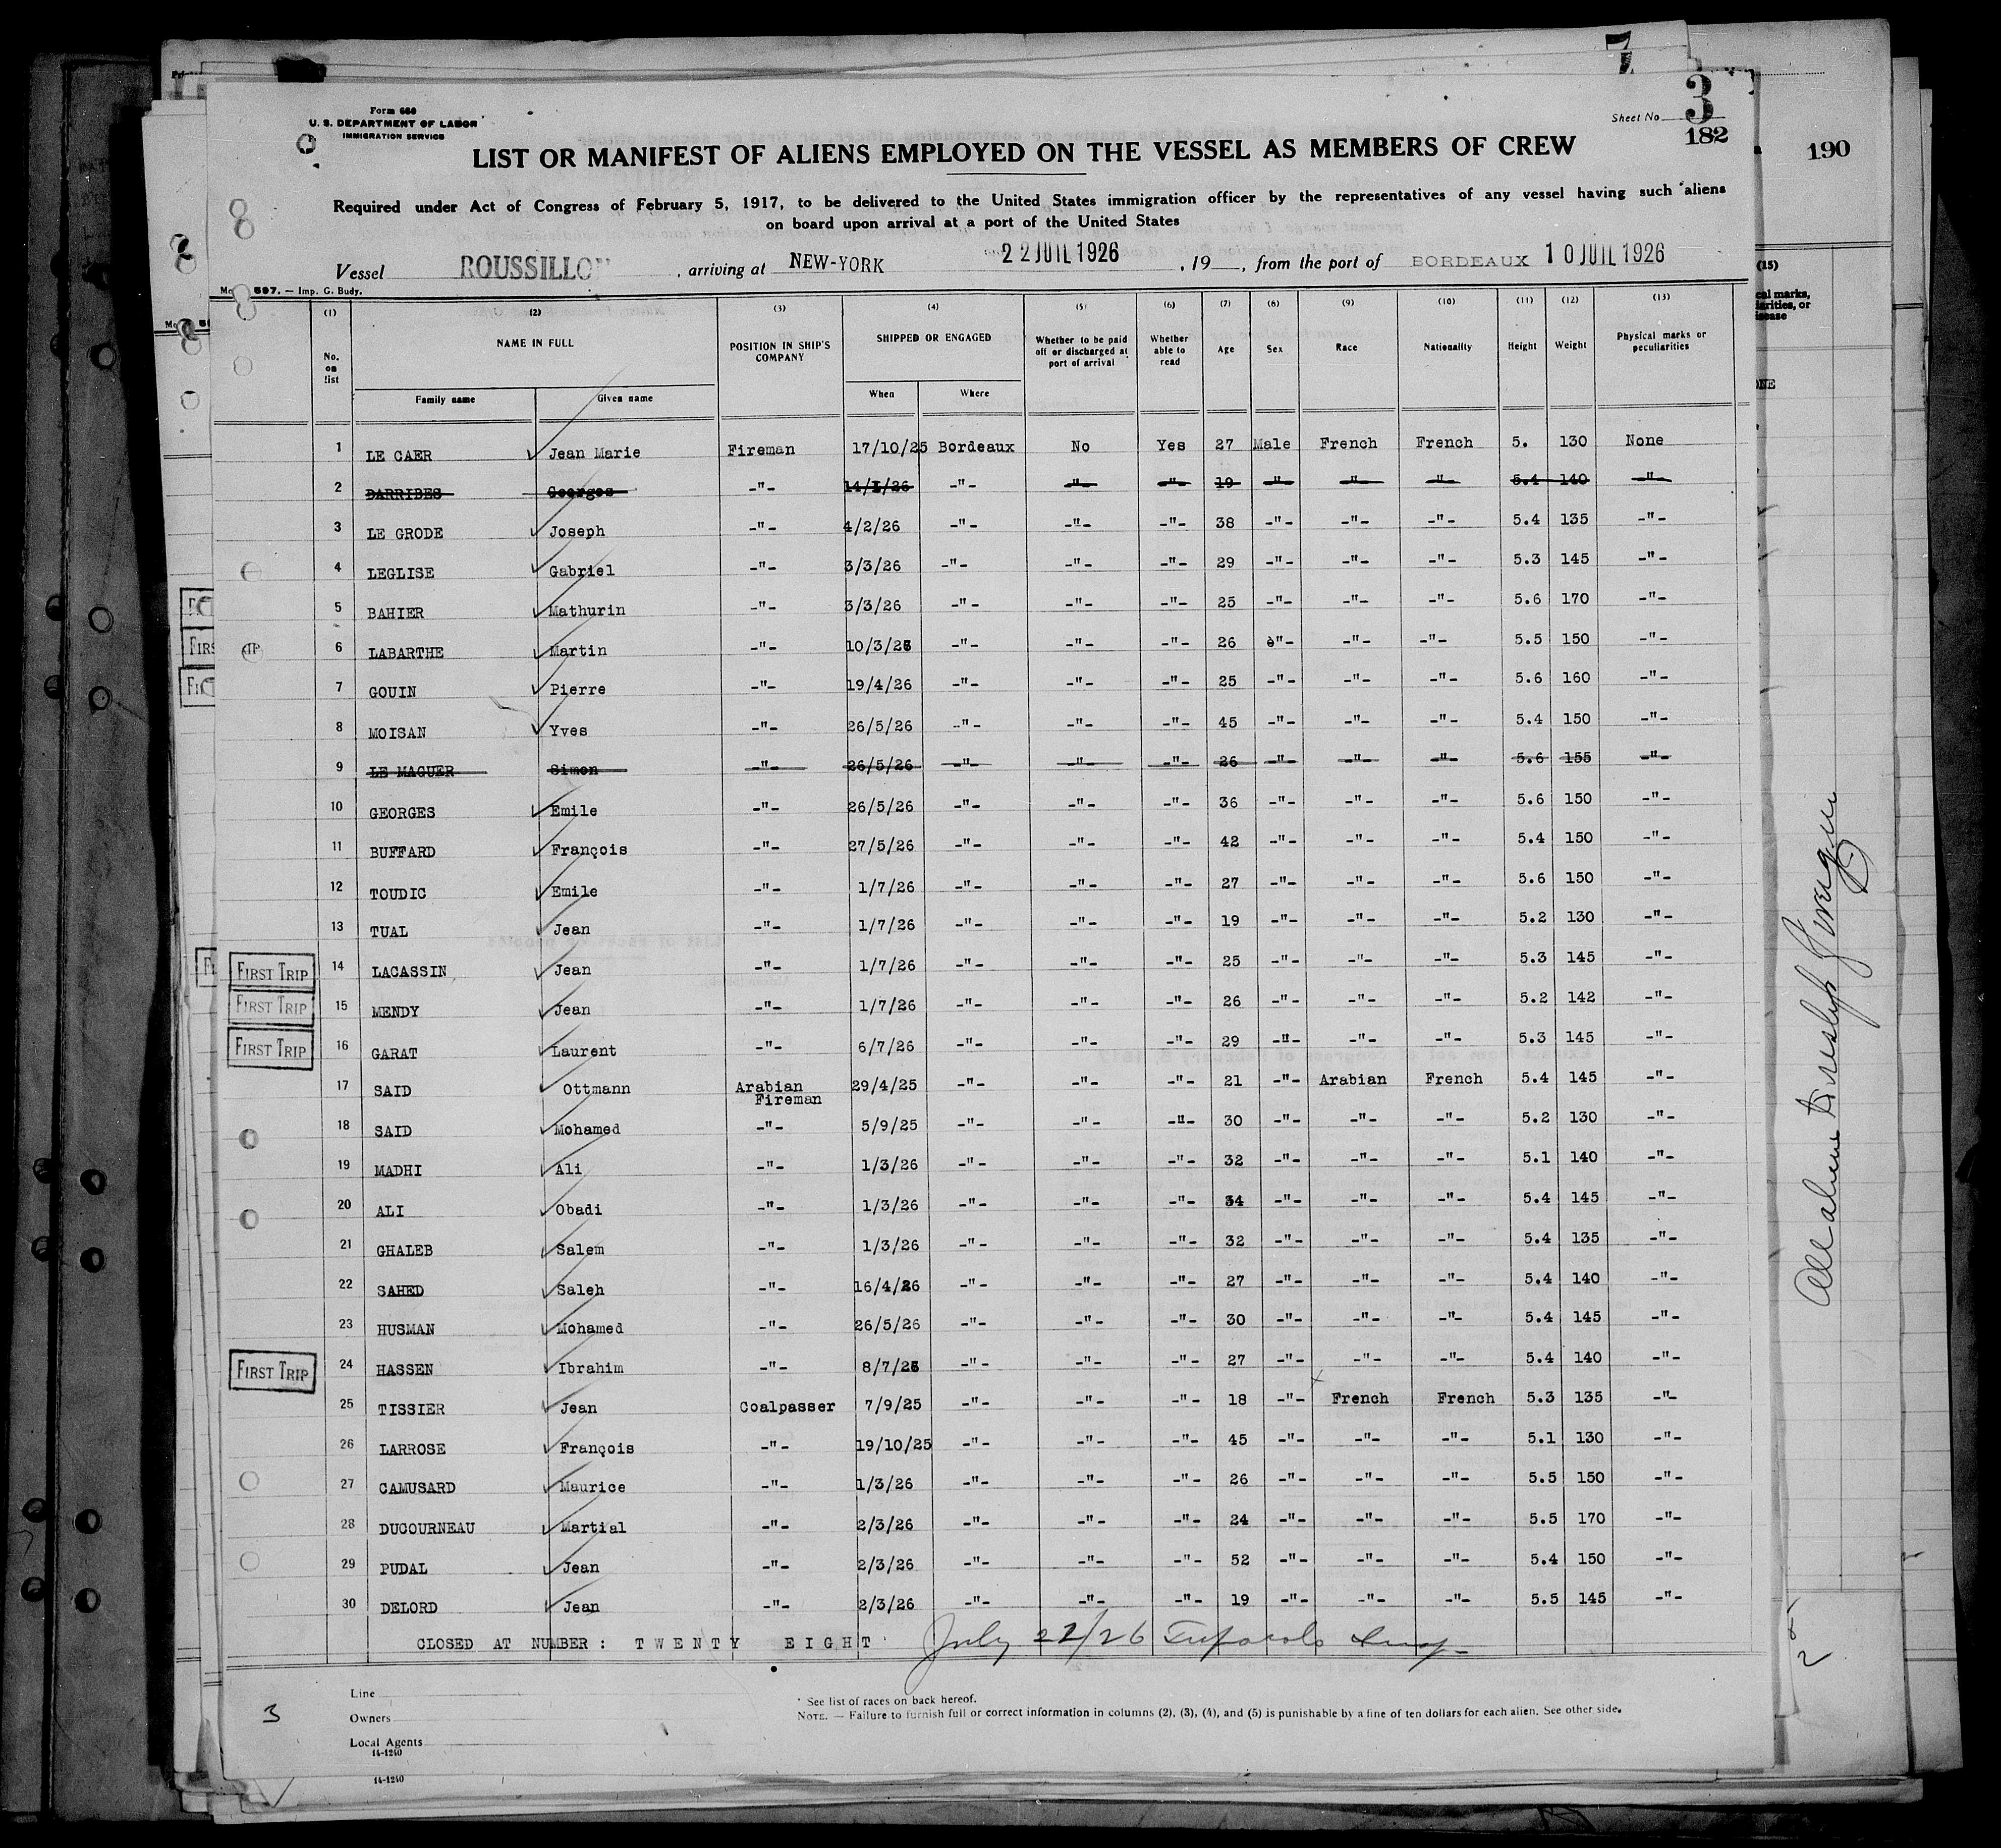 7
Form 680
U. S. DEPARTMENT OF LABOR
IMMIGRATION SERVICE
Sheet No 3
182
190
LIST OR MANIFEST OF ALIENS EMPLOYED ON THE VESSEL AS MEMBERS OF CREW
Required under Act of Congress of February 5, 1917, to be delivered to the United States immigration officer by the representatives of any vessel having such aliens
on board upon arrival at a port of the United States
Vessel ROUSSILLON, arriving at NEW-YORK 22 JUIL 1926, 19 , from the port of BORDEAUX 10 JUIL 1926
597. — Imp. G. Budy.
(1) (2) (3) (4) (5) (6) (7) (8) (9) (10) (11) (12) (13) (15)
No. on list NAME IN FULL POSITION IN SHIP'S COMPANY SHIPPED OR ENGAGED Whether to be paid off or discharged at port of arrival Whether able to read Age Sex Race Nationality Height Weight Physical marks or peculiarities
Family name Given name When Where
1 LE CAER Jean Marie Fireman 17/10/25 Bordeaux No Yes 27 Male French French 5. 130 None
2 DARRIBES Georges -"- 14/1/26 -"- -"- -"- 19 -"- -"- -"- 5.4 140 -"-
3 LE GRODE Joseph -"- 4/2/26 -"- -"- -"- 38 -"- -"- -"- 5.4 135 -"-
4 LEGLISE Gabriel -"- 3/3/26 -"- -"- -"- 29 -"- -"- -"- 5.3 145 -"-
5 BAHIER Mathurin -"- 3/3/26 -"- -"- -"- 25 -"- -"- -"- 5.6 170 -"-
6 LABARTHE Martin -"- 10/3/26 -"- -"- -"- 26 -"- -"- -"- 5.5 150 -"-
7 GOUIN Pierre -"- 19/4/26 -"- -"- -"- 25 -"- -"- -"- 5.6 160 -"-
8 MOISAN Yves -"- 26/5/26 -"- -"- -"- 45 -"- -"- -"- 5.4 150 -"-
9 LE MAGUER Simon -"- 26/5/26 -"- -"- -"- 26 -"- -"- -"- 5.6 155 -"-
10 GEORGES Emile -"- 26/5/26 -"- -"- -"- 36 -"- -"- -"- 5.6 150 -"-
11 BUFFARD François -"- 27/5/26 -"- -"- -"- 42 -"- -"- -"- 5.4 150 -"-
12 TOUDIC Emile -"- 1/7/26 -"- -"- -"- 27 -"- -"- -"- 5.6 150 -"-
13 TUAL Jean -"- 1/7/26 -"- -"- -"- 19 -"- -"- -"- 5.2 130 -"-
FIRST TRIP 14 LACASSIN Jean -"- 1/7/26 -"- -"- -"- 25 -"- -"- -"- 5.3 145 -"-
FIRST TRIP 15 MENDY Jean -"- 1/7/26 -"- -"- -"- 26 -"- -"- -"- 5.2 142 -"-
FIRST TRIP 16 GARAT Laurent -"- 6/7/26 -"- -"- -"- 29 -"- -"- -"- 5.3 145 -"-
17 SAID Ottmann Arabian Fireman 29/4/25 -"- -"- -"- 21 -"- Arabian French 5.4 145 -"-
18 SAID Mohamed -"- 5/9/25 -"- -"- -"- 30 -"- -"- -"- 5.2 130 -"-
19 MADHI Ali -"- 1/3/26 -"- -"- -"- 32 -"- -"- -"- 5.1 140 -"-
20 ALI Obadi -"- 1/3/26 -"- -"- -"- 34 -"- -"- -"- 5.4 145 -"-
21 GHALEB Salem -"- 1/3/26 -"- -"- -"- 32 -"- -"- -"- 5.4 135 -"-
22 SAHED Saleh -"- 16/4/26 -"- -"- -"- 27 -"- -"- -"- 5.4 140 -"-
23 HUSMAN Mohamed -"- 26/5/26 -"- -"- -"- 30 -"- -"- -"- 5.4 145 -"-
FIRST TRIP 24 HASSEN Ibrahim -"- 8/7/26 -"- -"- -"- 27 -"- -"- -"- 5.4 140 -"-
25 TISSIER Jean Coalpasser 7/9/25 -"- -"- -"- 18 -"- French French 5.3 135 -"-
26 LARROSE François -"- 19/10/25 -"- -"- -"- 45 -"- -"- -"- 5.1 130 -"-
27 CAMUSARD Maurice -"- 1/3/26 -"- -"- -"- 26 -"- -"- -"- 5.5 150 -"-
28 DUCOURNEAU Martial -"- 2/3/26 -"- -"- -"- 24 -"- -"- -"- 5.5 170 -"-
29 PUDAL Jean -"- 2/3/26 -"- -"- -"- 52 -"- -"- -"- 5.4 150 -"-
30 DELORD Jean -"- 2/3/26 -"- -"- -"- 19 -"- -"- -"- 5.5 145 -"-
CLOSED AT NUMBER: TWENTY EIGHT July 22/26
Line
Owners
Local Agents
14-1240
3
* See list of races on back hereof.
NOTE. — Failure to furnish full or correct information in columns (2), (3), (4), and (5) is punishable by a fine of ten dollars for each alien. See other side.
14-1240